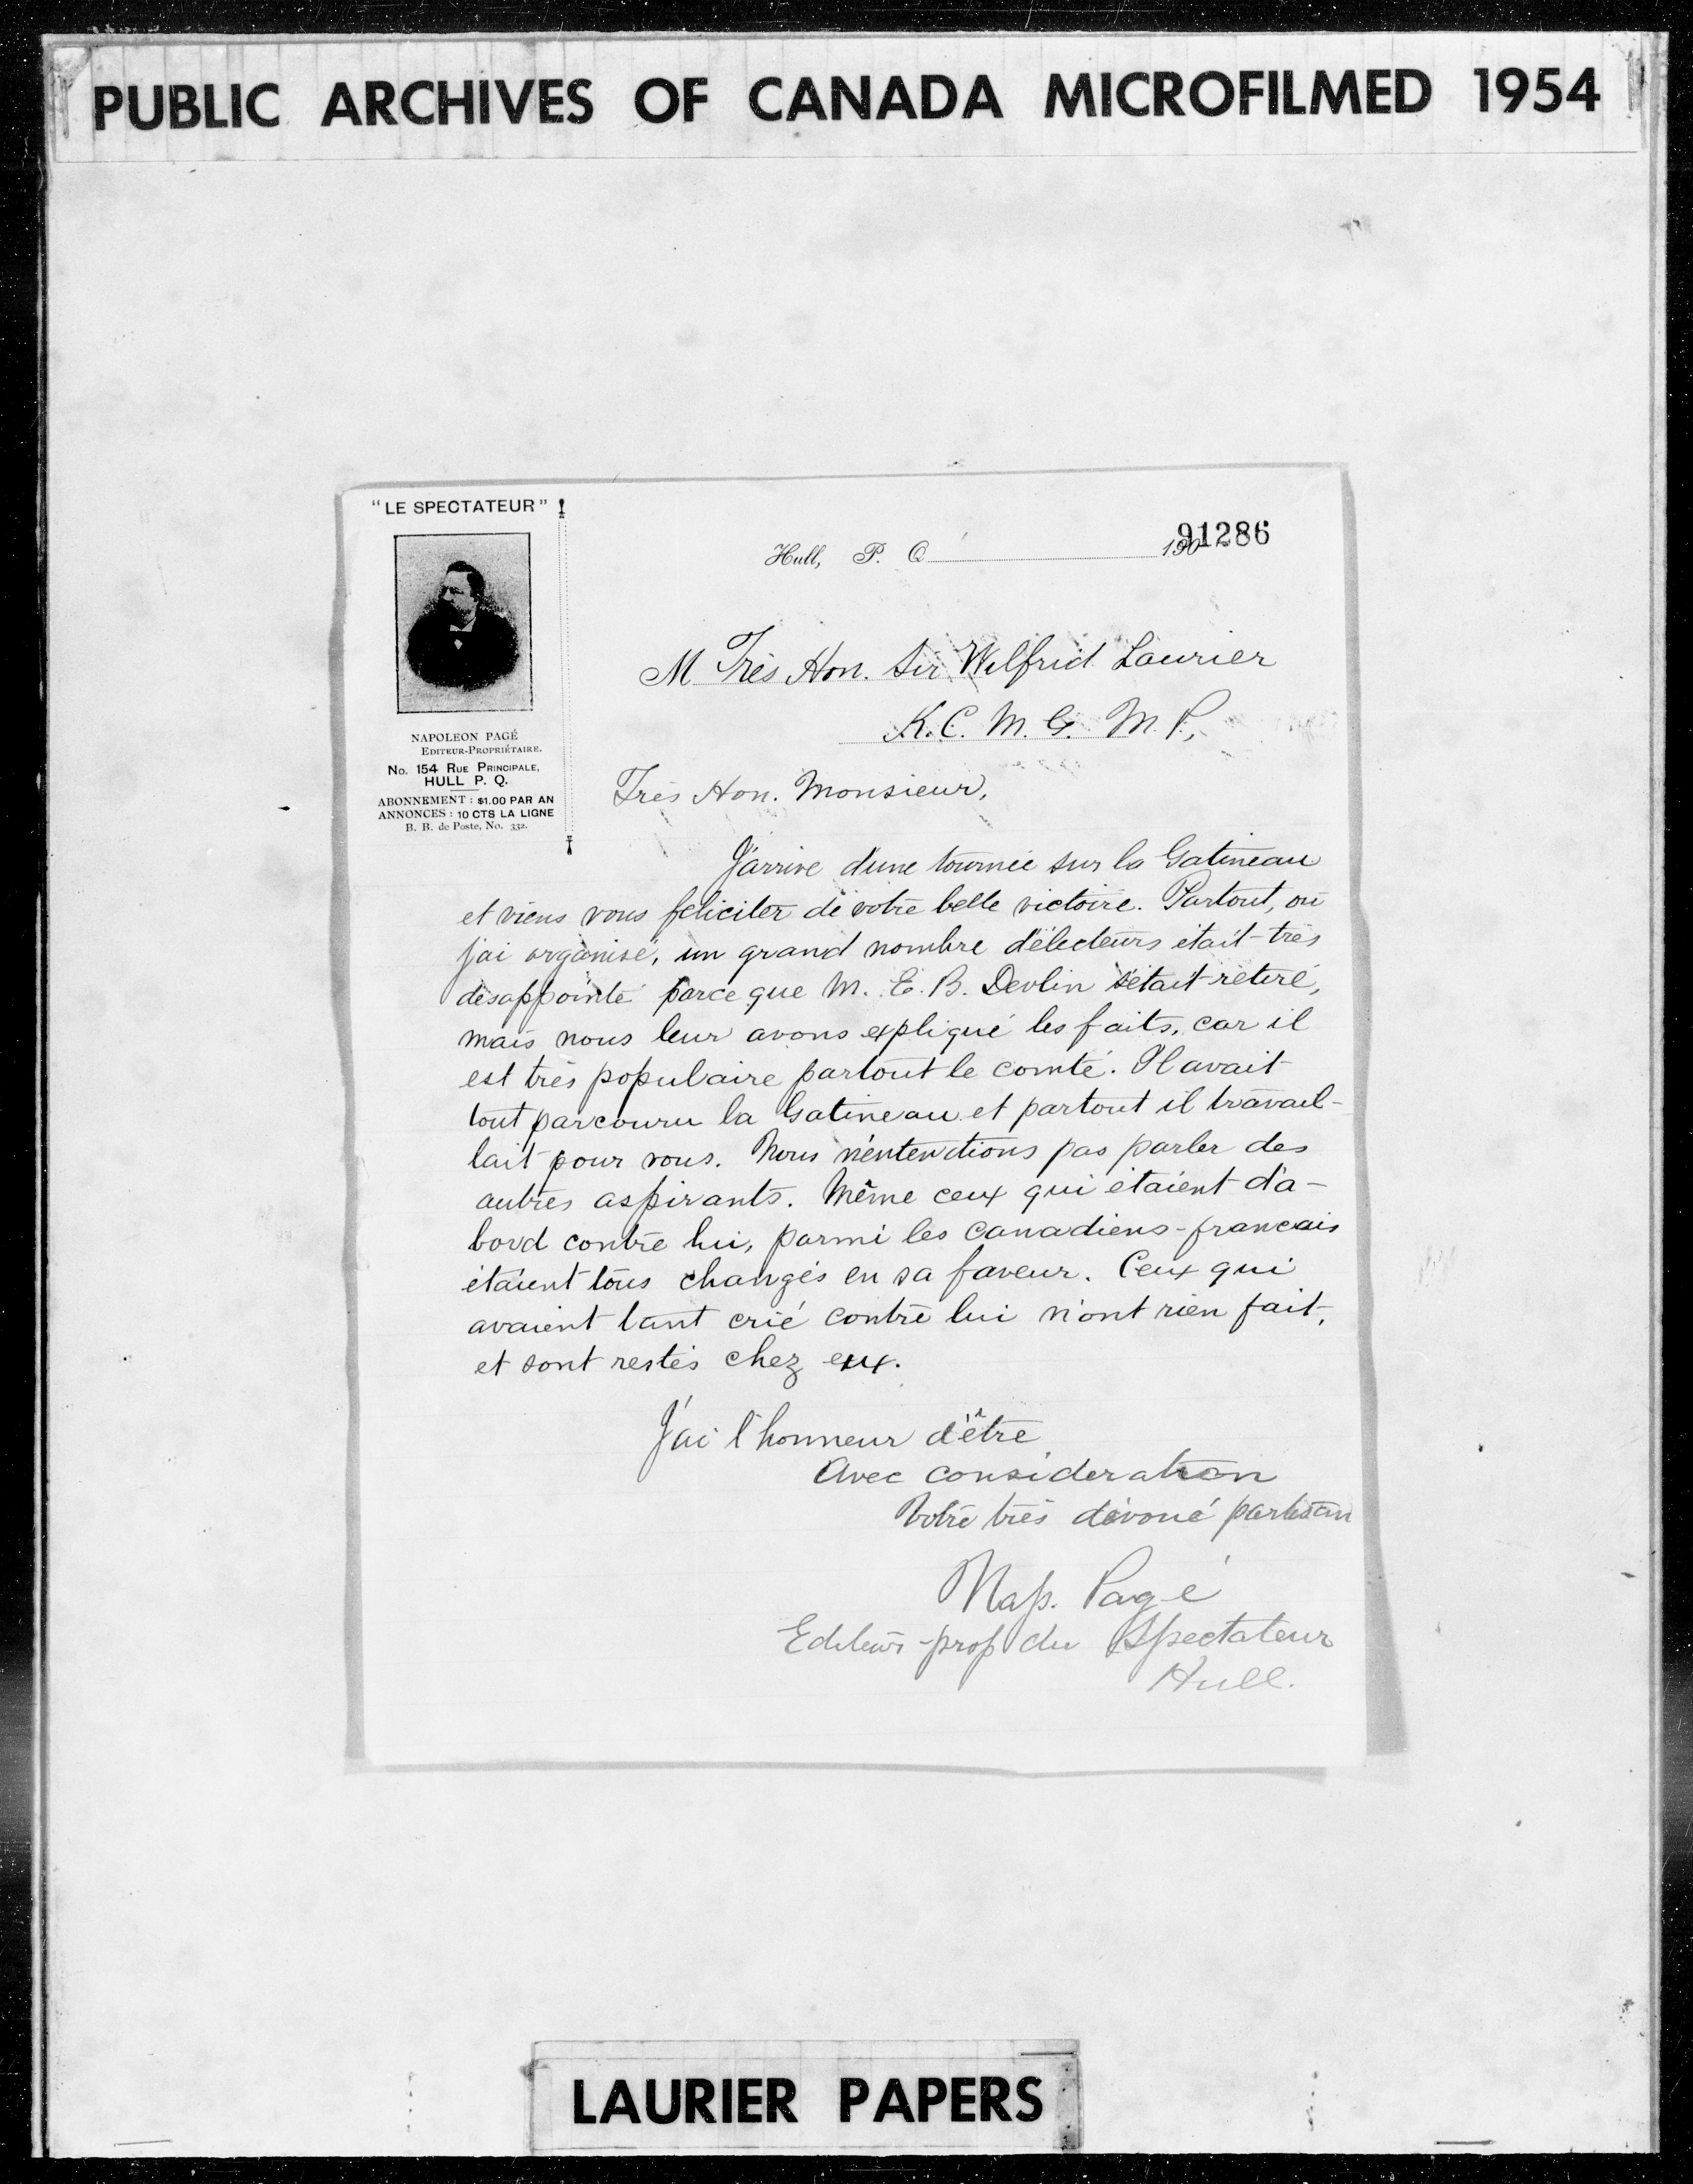 PUBLIC ARCHIVES OF CANADA MICROFILMED 1954
"LE SPECTATEUR"
NAPOLEON PAGÉ
EDITEUR-PROPRIÉTAIRE.
No. 154 RUE PRINCIPALE,
HULL P. Q.
ABONNEMENT : $1.00 PAR AN
ANNONCES : 10 CTS LA LIGNE
B. B. de Poste, No. 332.
91286
Hull, P. Q. 190
M Très Hon. Sir Wilfrid Laurier
K. C. M. G. M. P.,
Très Hon. Monsieur,
J'arrive d'une tournée sur la Gatineau
et viens vous féliciter de votre belle victoire. Partout, où
j'ai organisé, un grand nombre d'électeurs était très
désappointé parce que M. E. B. Devlin s'était retiré,
mais nous leur avons expliqué les faits, car il
est très populaire partout le comté. Il avait
tout parcouru la Gatineau et partout il travail-
lait pour vous. Nous n'entendions pas parler des
autres aspirants. Même ceux qui étaient d'a-
bord contre lui, parmi les canadiens-francais
étaient tous changés en sa faveur. Ceux qui
avaient tant crié contre lui n'ont rien fait,
et sont restés chez eux.
J'ai l'honneur d'être
Avec consideration
Votre très dévoué partisan
Nap. Pagé
Editeur-prop du Spectateur
Hull.
LAURIER PAPERS